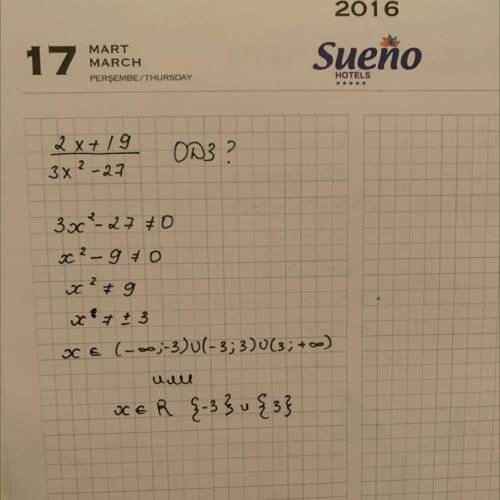 2016
17 MART
MARCH
PERŞEMBE/THURSDAY
Sueño
HOTELS
2x+19
3x²-27
ОДЗ?
3x²-27≠0
x²-9≠0
x²≠9
x≠±3
x∈(-∞;-3)∪(-3;3)∪(3;+∞)
или
x∈R {-3} и {3}